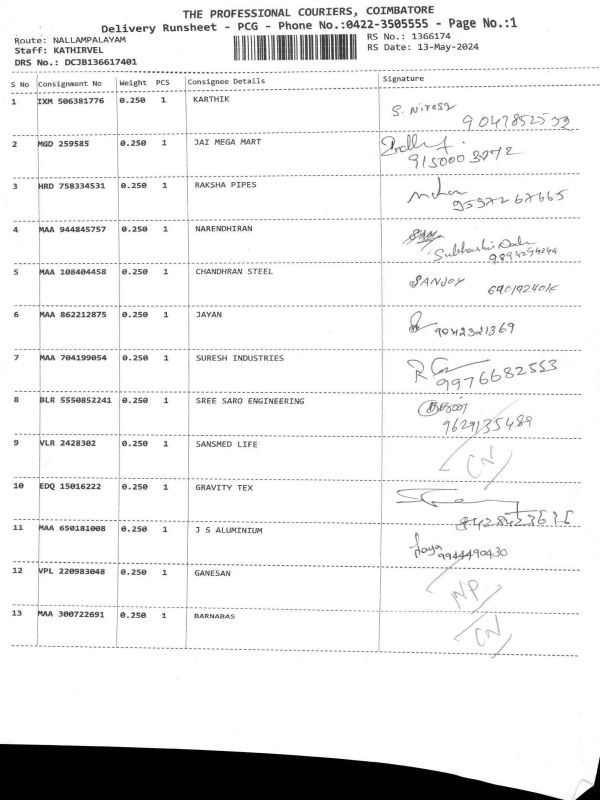 THE PROFESSIONAL COURIERS, COIMBATORE
Delivery Runsheet - PCG - Phone No.:0422-3505555 - Page No.:1
Route: NALLAMPALAYAM
RS No.: 1366174
Staff: KATHIRVEL
RS Date: 13-May-2024
DRS No.: DCJB136617401
S No Consignment No Weight PCS Consignee Details Signature
1 IXM 506381776 0.250 1 KARTHIK
2 MGD 259585 0.250 1 JAI MEGA MART
3 HRD 758334531 0.250 1 RAKSHA PIPES
4 MAA 944845757 0.250 1 NARENDHIRAN
5 MAA 108404458 0.250 1 CHANDHRAN STEEL SANJOY
6 MAA 862212875 0.250 1 JAYAN 9042321369
7 MAA 704199054 0.250 1 SURESH INDUSTRIES
9976682553
8 BLR 5550852241 0.250 1 SREE SARO ENGINEERING
9629135489
9 VLR 2428302 0.250 1 SANSMED LIFE CN
10 EDQ 15016222 0.250 1 GRAVITY TEX
11 MAA 650181008 0.250 1 J S ALUMINIUM Jaya 9944490430
12 VPL 220983048 0.250 1 GANESAN NP
13 MAA 300722691 0.250 1 BARNABAS CN